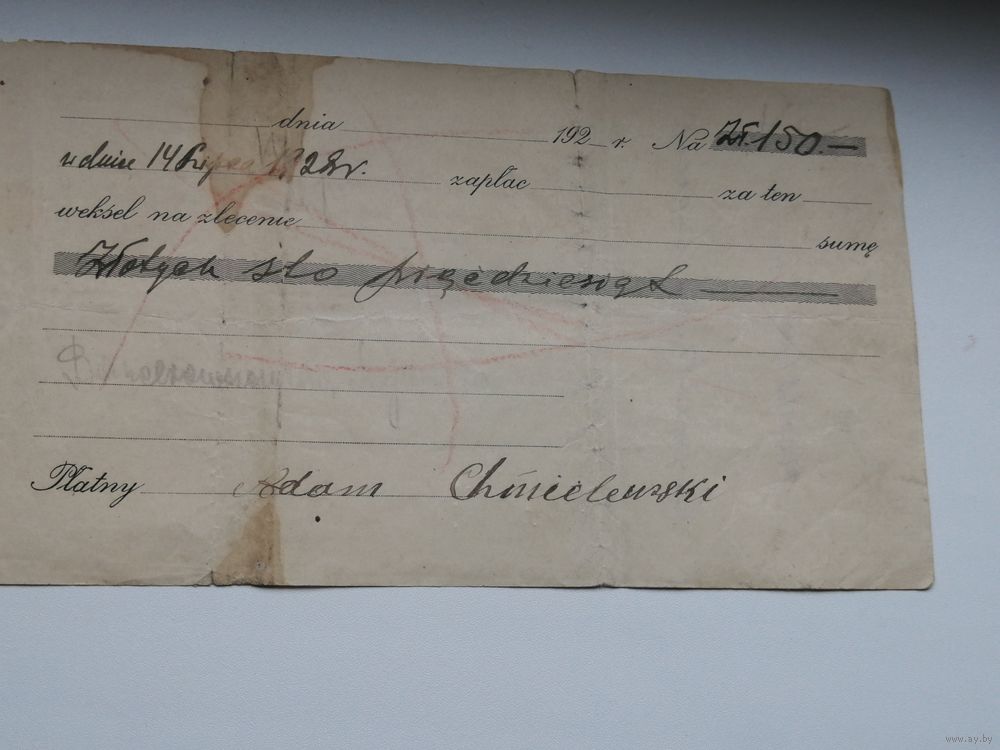 dnia 192 r. Na Zł. 150.—
w dniu 14 lipca 1928 r. zapłac za ten
weksel na zlecenie sumę
Złotych sto pięćdziesiąt
Płatny Adam Chmielewski
www.ay.by